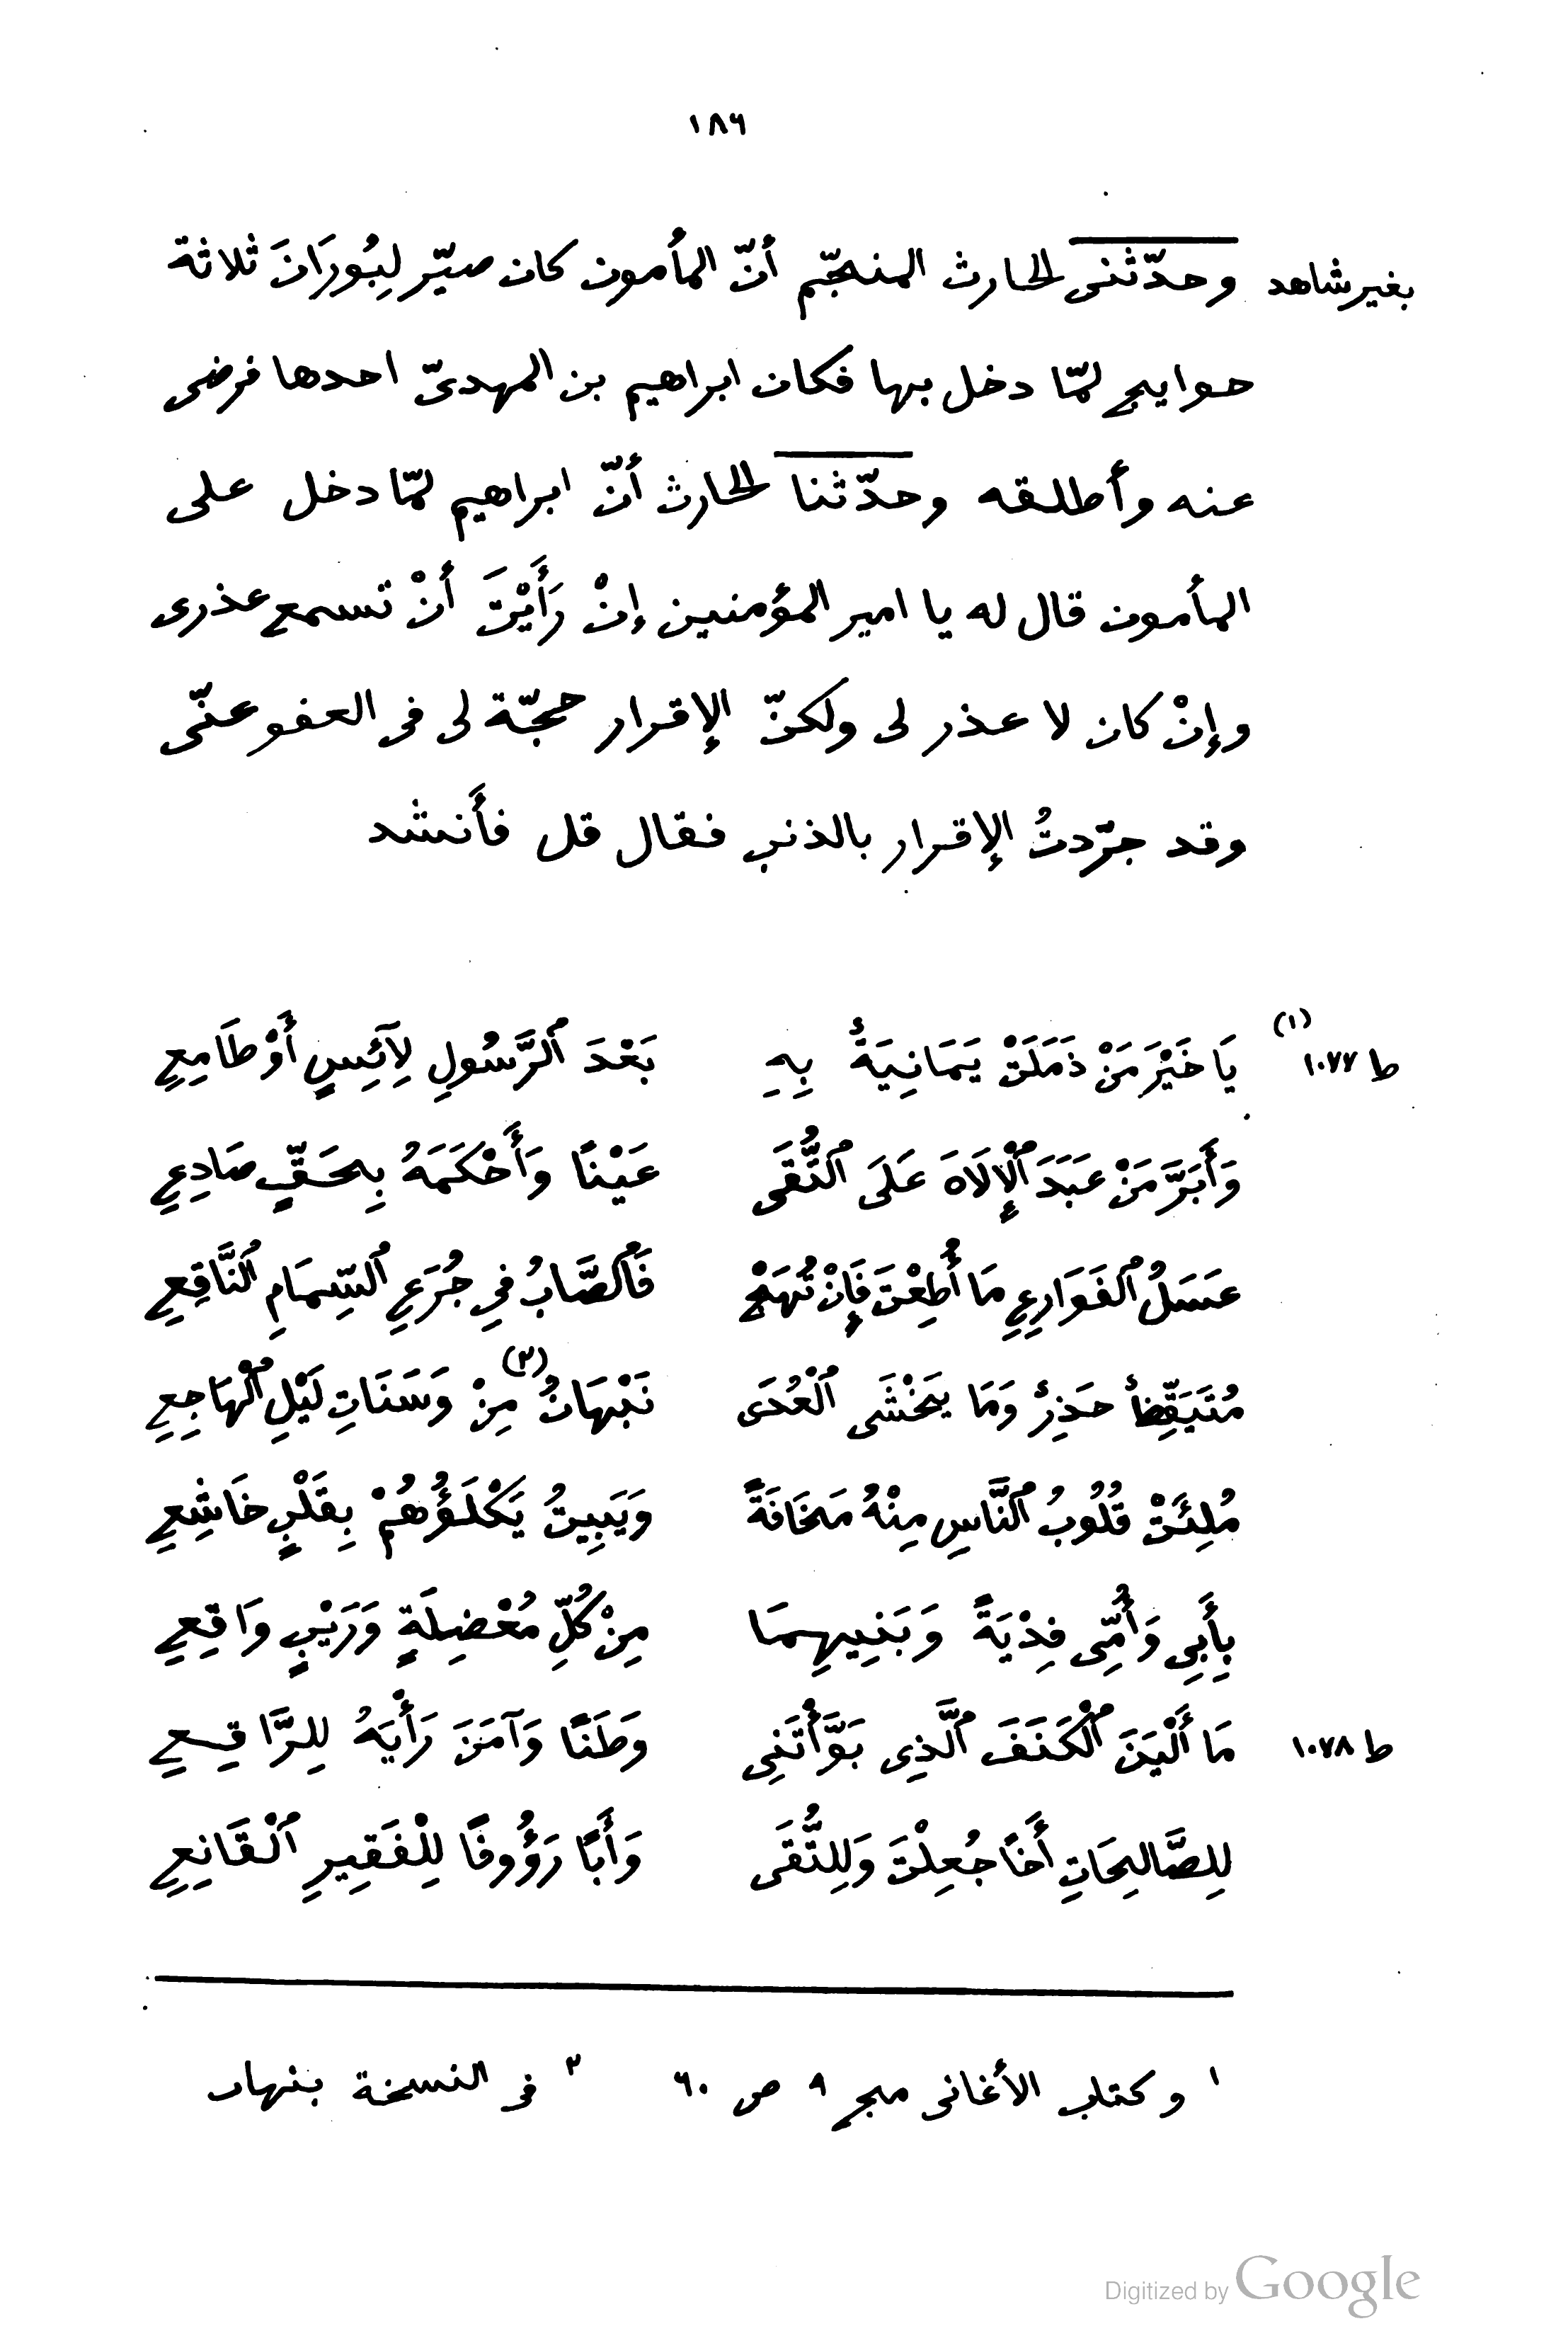 ١٨٦
بغير شاهد وحدّثنى الحارث المنجّم أنّ المأمون كان صيّر لِبُورَانَ ثلاثة
حوايج لمّا دخل بها فكان ابراهيم بن المهدىّ احدها فرضى
عنه وأطلقه وحدّثنا الحارث أنّ ابراهيم لمّا دخل على
المأمون قال له يا امير المؤمنين إنْ رَأَيْتَ أنْ تسمع عذرى
وإنْ كان لا عذر لى ولكنّ الإقرار حجّة لى فى العفو عنّى
وقد جرّدتُ الإقرار بالذنب فقال قل فأَنشد
ط ١٠٧٧ (١) يَا خَيْرَ مَنْ ذَمَلَتْ يَمَانِيَةٌ بِهِ بَعْدَ ٱلرَّسُولِ لِآئِسٍ أَوْ طَامِعِ
وَأَبَرَّ مَنْ عَبَدَ ٱلْإِلَاهَ عَلَى ٱلتُّقَى عَيْنًا وَأَحْكَمَهُ بِحَقٍّ صَادِعِ
عَسَلُ ٱلفَوَارِعِ مَا أُطِعْتَ فَإِنْ تُهَجْ فَٱلصَّابُ فِي جُرَعِ ٱلسِّمَامِ ٱلنَّاقِعِ
مُتَيَقِّظٌ حَذِرٌ وَمَا يَخْشَى ٱلْعُدَى نَبْهَانُ (٢) مِنْ وَسَنَاتِ لَيْلِ ٱلْهَاجِعِ
مُلِئَتْ قُلُوبُ ٱلنَّاسِ مِنْهُ مَخَافَةً وَيَبِيتُ يَكْلَؤُهُمْ بِقَلْبٍ خَاشِعِ
بِأَبِى وَأُمِّى فِدْيَةً وَبَنِيهِمَا مِنْ كُلِّ مُعْضِلَةٍ وَرَيْبٍ وَاقِعِ
ط ١٠٧٨ مَا أَلْيَنَ ٱلْكَنَفَ ٱلَّذِى بَوَّأْتَنِى وَطَنًا وَآمَنَ رَأْيَهُ لِلرَّاقِعِ
لِلصَّالِحَاتِ أَخًا جُعِلْتَ وَلِلتُّقَى وَأَبًا رَؤُوفًا لِلْفَقِيرِ ٱلْقَانِعِ
١ وكتاب الأغانى مج ٩ ص ٦٠ ٢ فى النسخة بنهاب
Digitized by Google